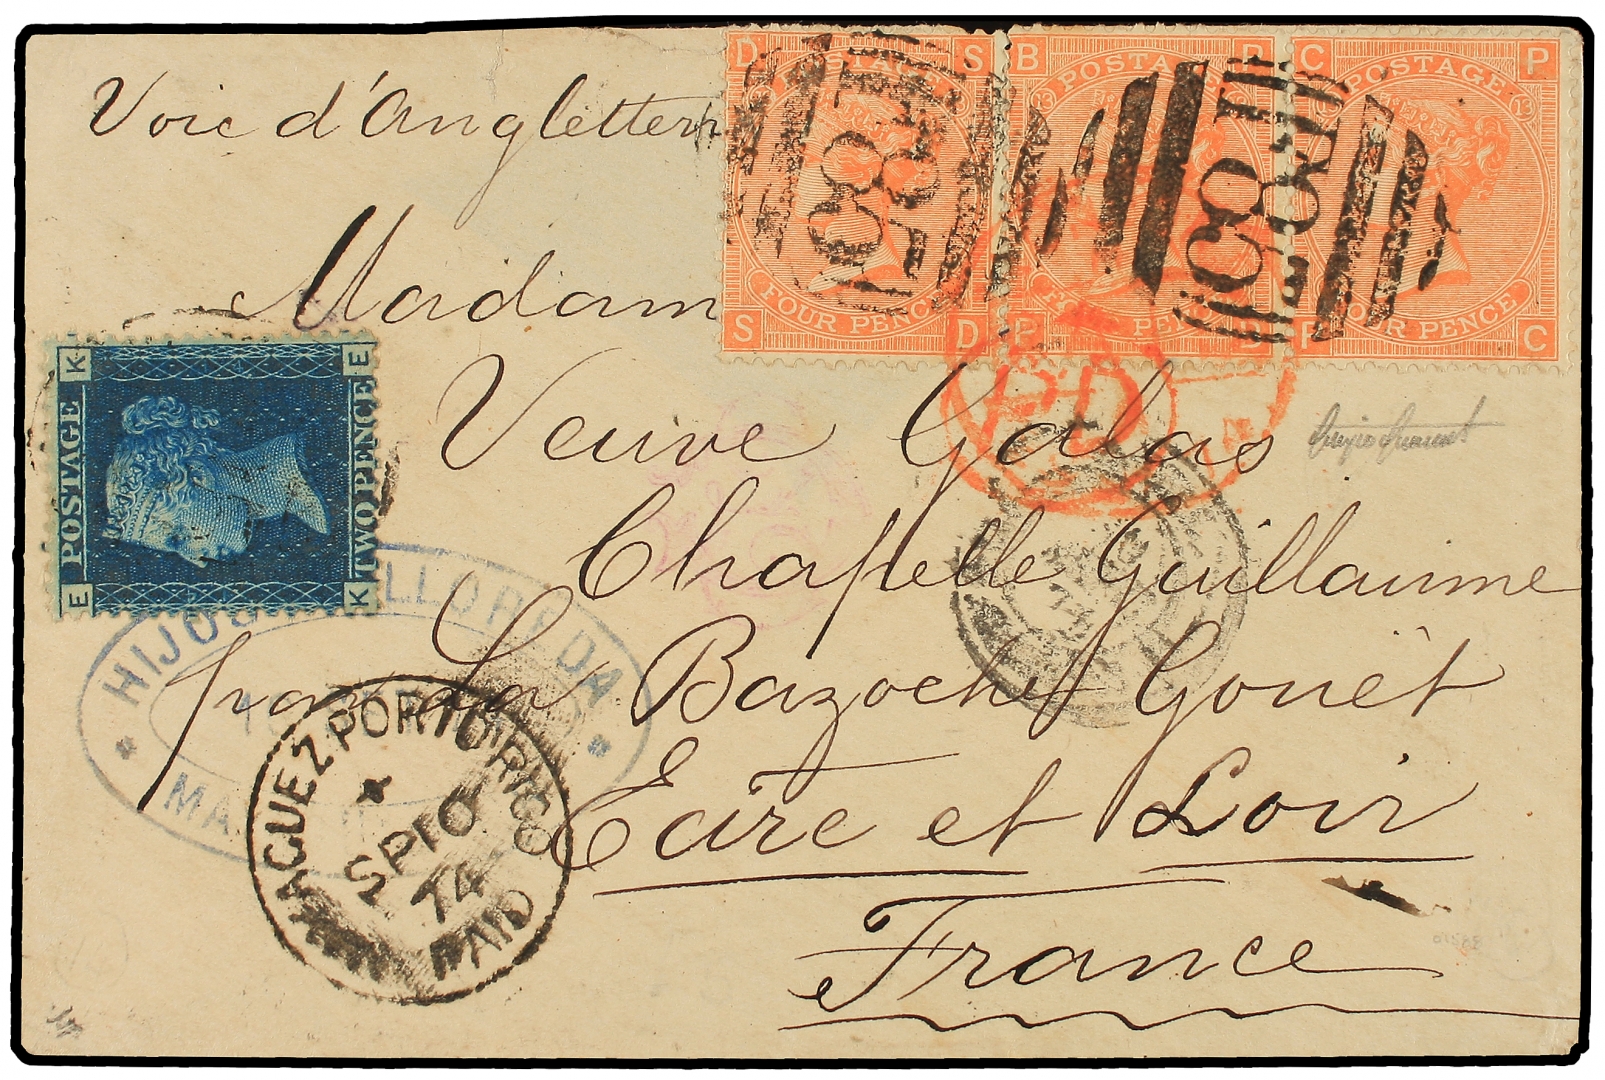 Voie d'Angletterr
D S B P C P
POSTAGE POSTAGE POSTAGE
13 13 13
F85 F85
FOUR PENCE FOUR PENCE FOUR PENCE
S D P C
Madam
K E
POSTAGE TWO PENCE
E K
Veuve Galas
PD
Chapelle Guillaume
par La Bazoche Gouët
HIJOS
MA
MAYAGUEZ PORTO RICO
SP 10
74
PAID
Eure et Loir
France